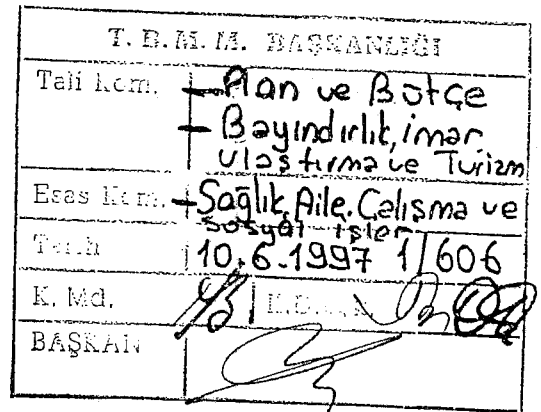 T. B. M. M. BAŞKANLIĞI
Tali Kom. - Plan ve Bütçe
- Bayındırlık, imar
ulaştırma ve Turizm
Esas Kom. - Sağlık, Aile, Çalışma ve
sosyal işler
Tarih 10.6.1997 1/606
K. Md.
BAŞKAN